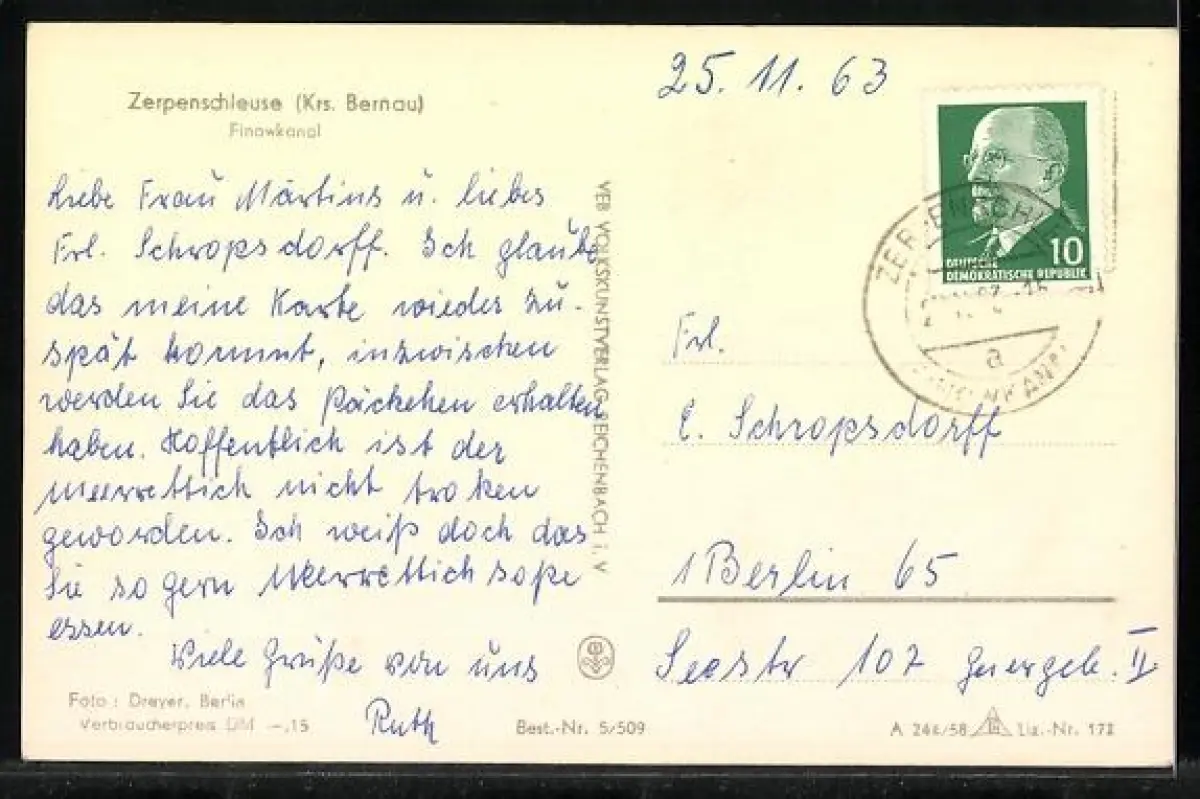 Zerpenschleuse (Krs. Bernau)
Finowkanal
25. 11. 63
Liebe Frau Märtins u. liebes
Frl. Schropsdorff. Ich glaube
das meine Karte wieder zu-
spät kommt, inzwischen
werden Sie das Päckchen erhalten
haben. Hoffentlich ist der
Meerrettich nicht troken
geworden. Ich weiß doch das
Sie so gern Meerrettichsoße
essen.
Viele Grüße von uns
Ruth
Foto: Dreyer, Berlin
Verbraucherpreis DM -,15
Best.-Nr. 5/509
VEB VOLKSKUNSTVERLAG REICHENBACH i. V
10
DEUTSCHE
DEMOKRATISCHE REPUBLIK
a
Frl.
E. Schropsdorff
1 Berlin 65
Seestr 107 Quergeb. II
A 244/58 Liz.-Nr. 172